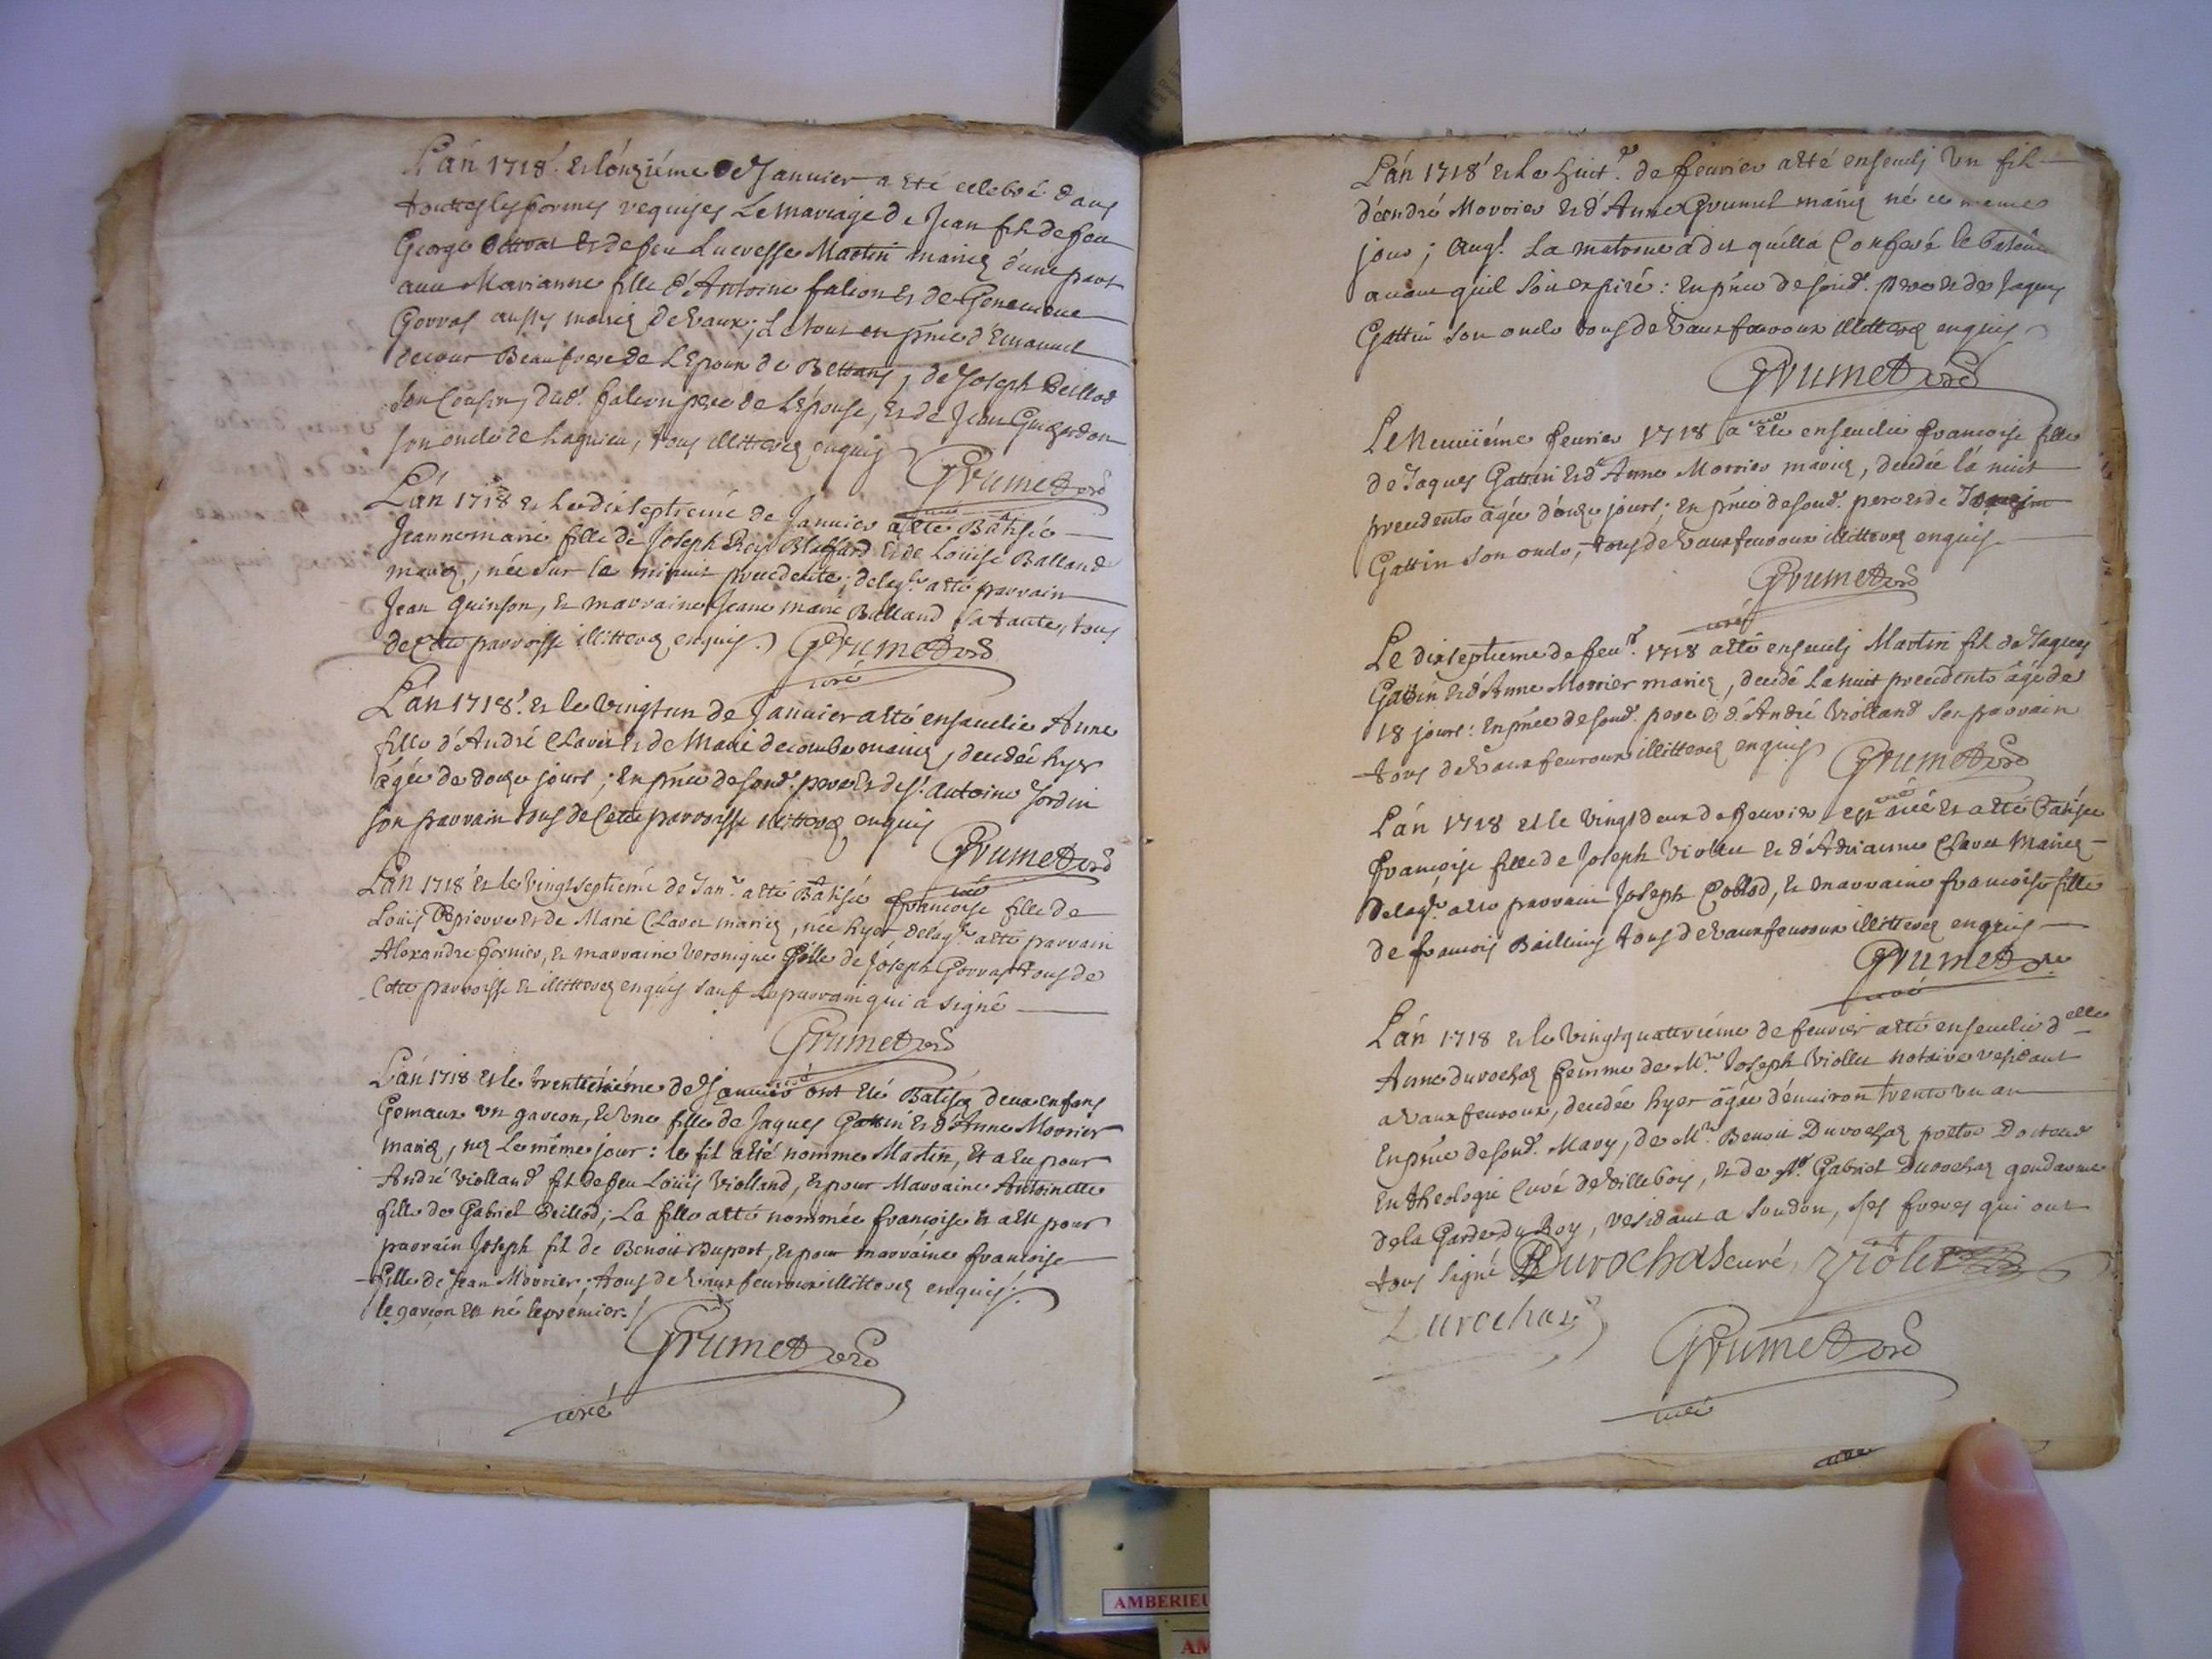 L'an 1718. et l'onziéme de Janvier a été celebré dans
touttes les formes requises Le mariage de Jean fil de feu
George et de feu Lucresse Martin mariez d'une part
avec Marianne fille d'Antoine falcon et de Genevieve
Gorras aussy mariez de Vaux; Le tout en pnce d'Emanuel
decour Beaufrere de L'Epoux de Bettans, de Joseph Peillod
son Cousin, dud. falcon pere de L'épouse, et de Jean
son oncle de Lagnieu, tous illitterez enquis
Grumet
curé
L'an 1718 et le dixseptiéme de Janvier a été Batisée
Jeannemarie fille de Joseph Rey Blaffard et de Louise Balland
mariez, née sur le minuit precedente; delaqle. a été parrain
Jean Quinson, et marraine Jeane marie Balland sa tante, tous
de cette parroisse illitterez enquis.
Grumet
curé
L'an 1718. et le vingt un de Janvier a été ensevelie Anne
fille d'André Clavet et de Marie decombe mariez, decedée hyer
agée de douze jours; En pnce de sond. pere et de s. Antoine Jordin
son parrain tous de Cette parroisse illitterez enquis
Grumet
curé
L'an 1718 et le vingtseptiéme de Janr. a été Batisée francoise fille de
Louis Depierre et de Marie Clavet mariez, née hyer delaqle. a été parrain
Alexandre fornier, et marraine Veronique fille de Joseph Gorras tous de
Cette parroisse et illitterez enquis sauf le parrain qui a signé
Grumet
curé
L'an 1718 et le trentiéme de Janvier ont été Batisez deux enfans
Gemaux un garcon, et une fille de Jaques Gattin et d'Anne Morrier
mariez, nez le même jour: le fil a été nommé Martin, et a eu pour
André Violland fil de feu Louis Violland, et pour Marraine Antoinette
fille de Gabriel Peillod; La fille a été nommée francoise et a eu pour
parrain Joseph fil de Benoit Duport, et pour marraine francoise
fille de Jean Morrier; tous de Vauxfevroux illitterez enquis.
le garcon est né le premier.
Grumet
curé
L'an 1718 et le huitr. de fevrier a été enseveli un fil
d'andré Morrier et d'Anne Grumet mariez né ce meme
jour; auql. La matrone a dit qu'ella Conferé le Batême
avant quil soit expiré: En pnce de soud. pere et de Jaques
Gattin son oncle tous de Vauxfevroux illitterez enquis
Grumet
curé
Le Neuviéme fevrier 1718 a été ensevelie francoise fille
de Jaques Gattin et d'Anne Morrier mariez, decedée la nuit
precedente agée d'onze jours: En pnce de soud. pere et de
Gattin son oncle, tous de Vauxfevroux illitterez enquis
Grumet
curé
Le dixseptieme de fevr. 1718 a été enseveli Martin fil de Jaques
Gattin et d'Anne Morrier mariez, decedé la nuit precedente âgé de
18 jours: En pnce de soud. pere et d'André Violland son parrain
tous de Vauxfevroux illitterez enquis
Grumet
curé
L'an 1718 et le vingtdeux de fevrier est née et a été Batisée
francoise fille de Joseph Viollet et d'Adrianne Clavet Mariez
delaqle. a eu parrain Joseph Coblod, et marraine francoise fille
de francois Bailling tous de Vauxfevroux illitterez enquis
Grumet
curé
L'an 1718 et le vingtquattriéme de fevrier a été ensevelie delle
Anne durochas femme de Mre Joseph Viollet notaire residant
a Vauxfevroux, decedée hyer agée d'environ trente un an
En pnce de sond. Mary, de Mre Benoit Durochas pretre Docteur
En theologie Curé de Villeboy, et de Mr. Gabriel Durochas gendarme
de la Garde du Roy, residant a Soudon, ses freres qui ont
tous signé Durochas curé Violet
Durochas
Grumet
curé
AMBERIEU
AM